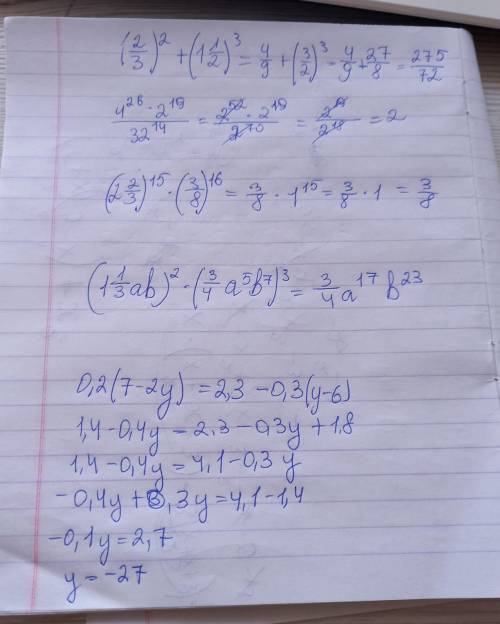 (2/3)² + (1 1/2)³ = 4/9 + (3/2)³ = 4/9 + 27/8 = 275/72
4²⁶ · 2¹⁹ / 32¹⁴ = 2⁵² · 2¹⁹ / 2⁷⁰ = = 2
(2 2/3)¹⁵ · (3/8)¹⁶ = 3/8 · 1¹⁵ = 3/8 · 1 = 3/8
(1 1/3 ab)² · (3/4 a⁵b⁷)³ = 3/4 a¹⁷ b²³
0,2(7-2y) = 2,3 - 0,3(y-6)
1,4 - 0,4y = 2,3 - 0,3y + 1,8
1,4 - 0,4y = 4,1 - 0,3y
-0,4y + 0,3y = 4,1 - 1,4
-0,1y = 2,7
y = -27